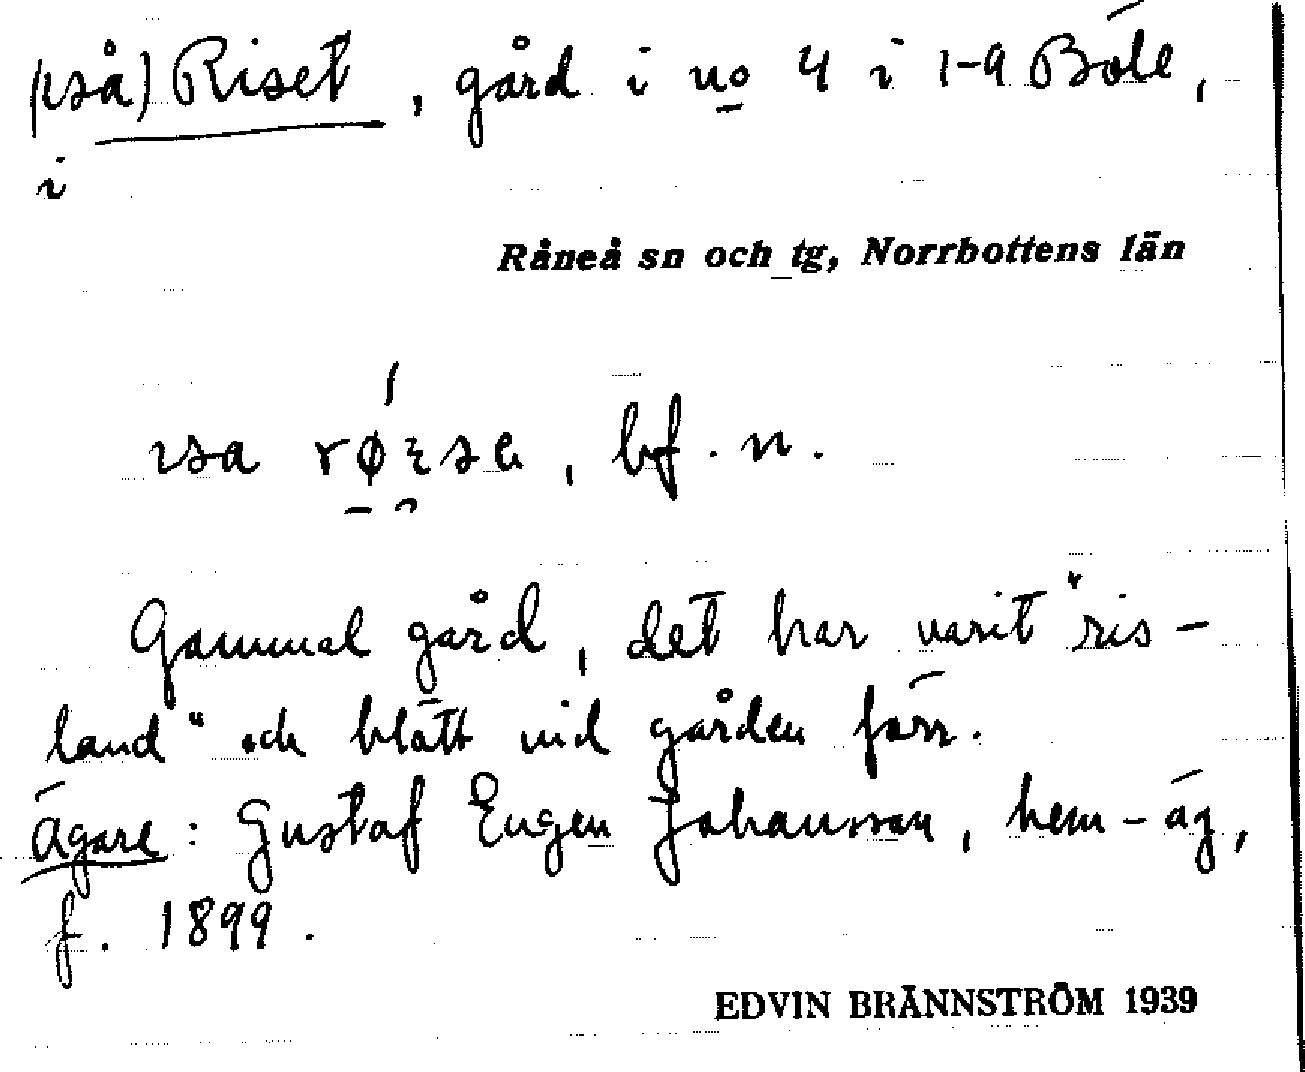 (på) Riset, gård i no 4 i 1-9 Böle,
i
Råneå sn och tg, Norrbottens län
bf. n.
Gammal gård, det har varit "ris-
land" och blött vid gården förr.
Ägare: Gustaf Eugen Johansson, hem-äg,
f. 1899.
EDVIN BRÄNNSTRÖM 1939